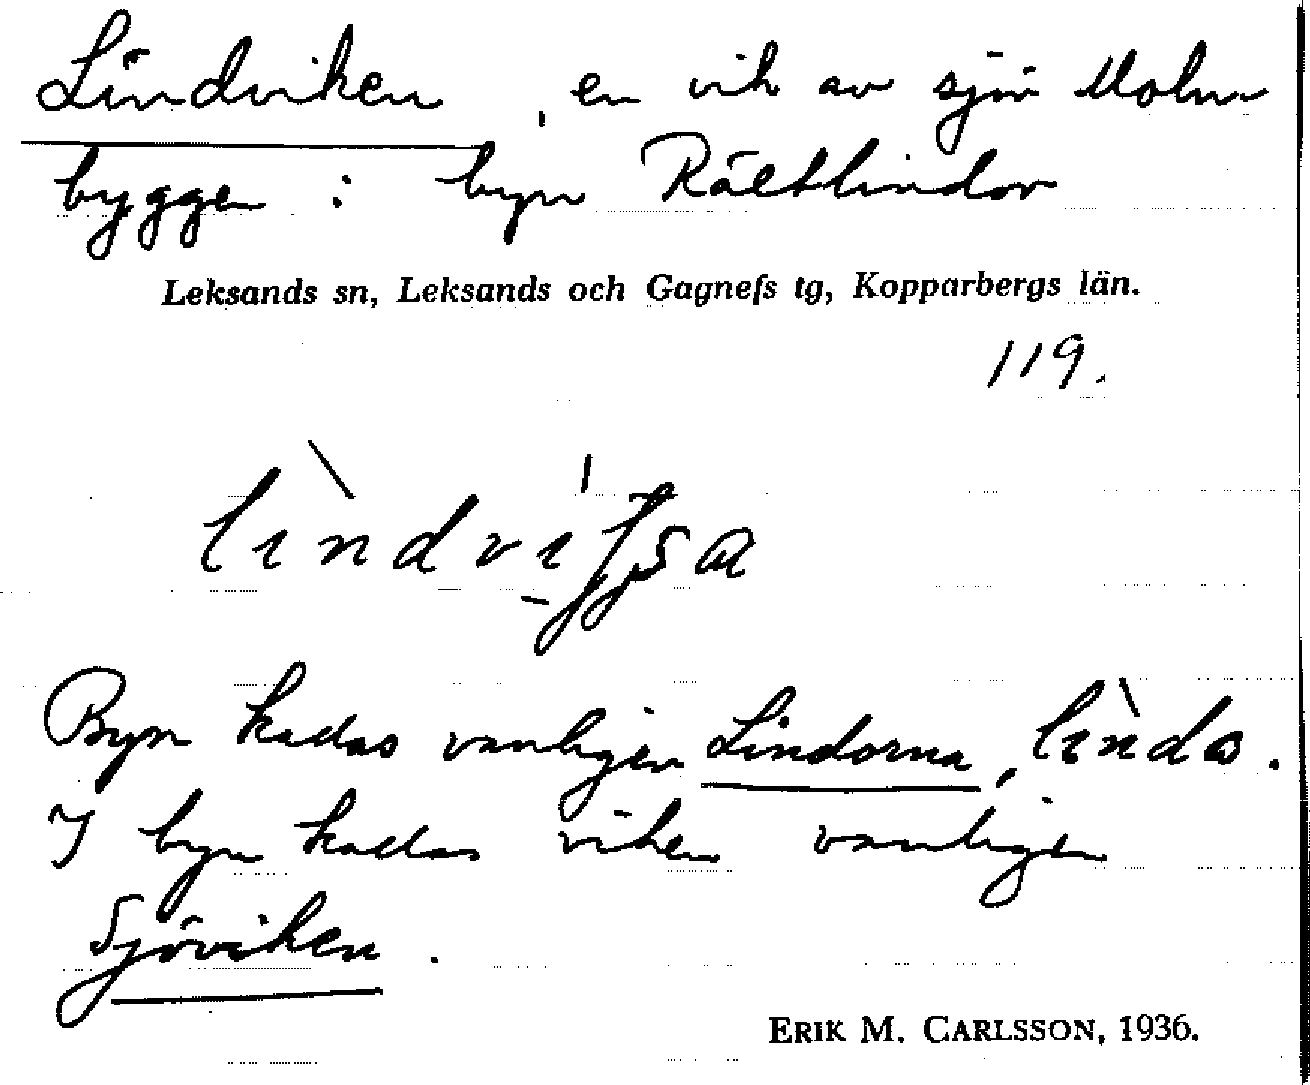 Lindviken, en vik av sjön Moln-
byggen i byn Rältlindor
Leksands sn, Leksands och Gagnefs tg, Kopparbergs län.
119.
Byn kallas vanligen Lindorna,
I byn kallas viken vanligen
Sjöviken.
ERIK M. CARLSSON, 1936.